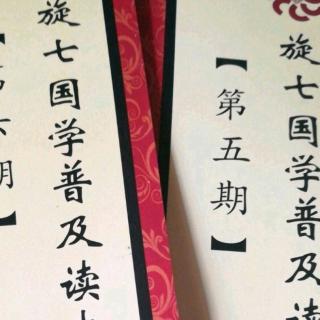 旋七国学普及
【第五期】
旋七国学普及读
【第六期】